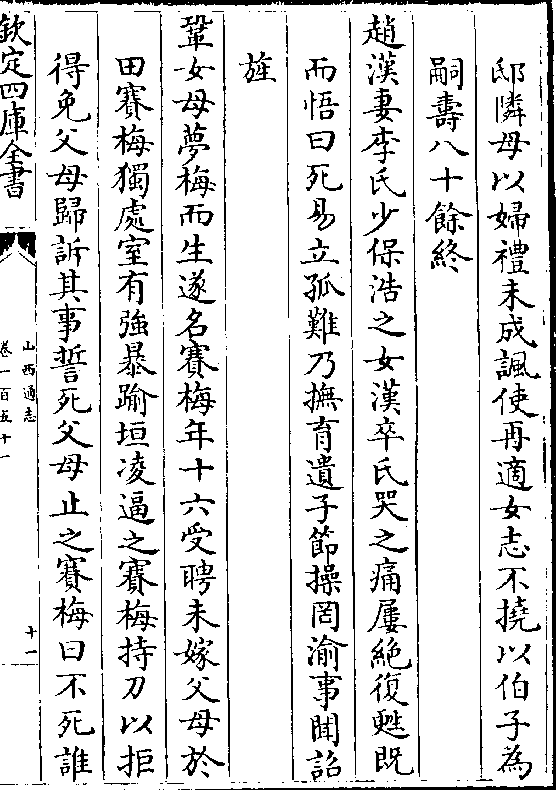 邸隣母以婦禮未成諷使再適女志不撓以伯子為
嗣壽八十餘終
趙漢妻李氏少保浩之女漢卒氏哭之痛屢絶復甦既
而悟曰死易立孤難乃撫育遺子節操罔渝事聞詔
旌
鞏女母夢梅而生遂名賽梅年十六受聘未嫁父母於
田賽梅獨處室有強暴踰垣凌逼之賽梅持刀以拒
得免父母歸訴其事誓死父母止之賽梅曰不死誰
欽定四庫全書
山西通志
卷一百五十一
十一